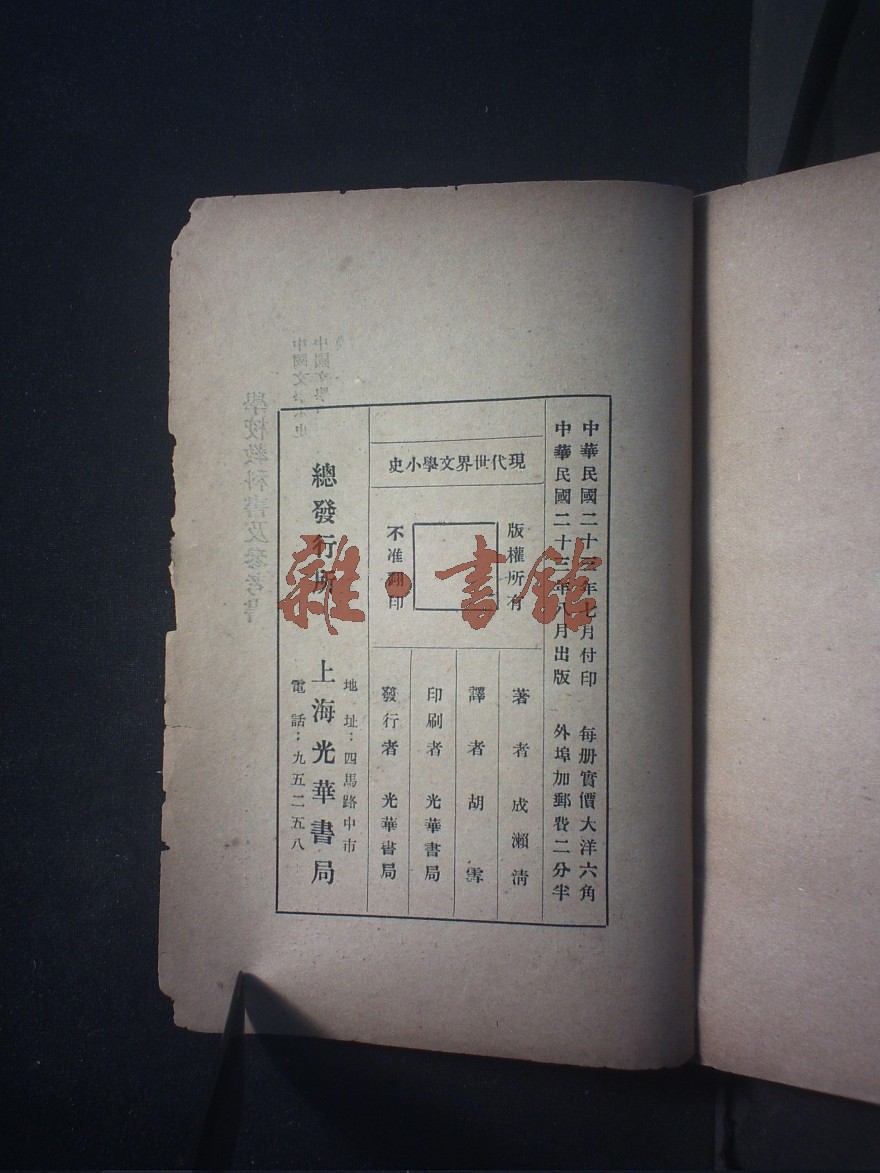 中華民國二十三年七月付印 每册實價大洋六角
中華民國二十三年八月出版 外埠加郵費二分半
現代世界文學小史
版權所有
不准翻印
著者 成瀨淸
譯者 胡雪
印刷者 光華書局
發行者 光華書局
總發行所 上海光華書局
地址：四馬路中市
電話：九五二五八
學校教科書及參考書
雜·書館